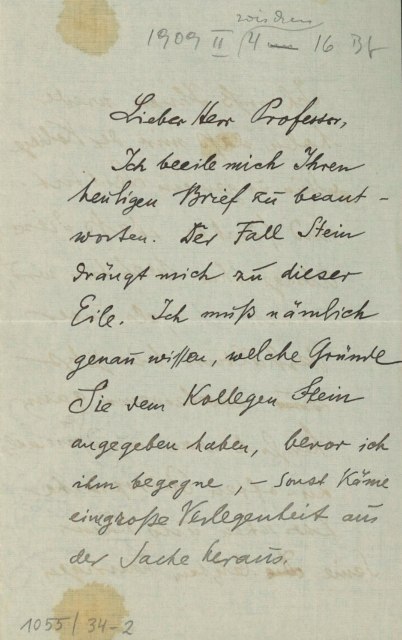 zwischen
1909 II 4 — 16 Bf
Lieber Herr Professor,
Ich beeile mich Ihren
heutigen Brief zu beant-
worten. Der Fall Stein
drängt mich zu dieser
Eile. Ich muß nämlich
genau wissen, welche Gründe
Sie dem Kollegen Stein
angegeben haben, bevor ich
ihm begegne, – sonst käme
eine große Verlegenheit aus
der Sache heraus.
1055/34-2